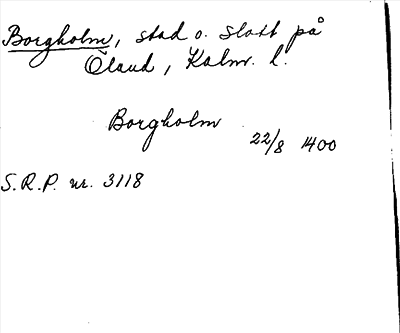 Borgholm, stad o. slott på
Öland, Kalm. l.
Borgholm
22/8 1400
S.R.P. nr. 3118